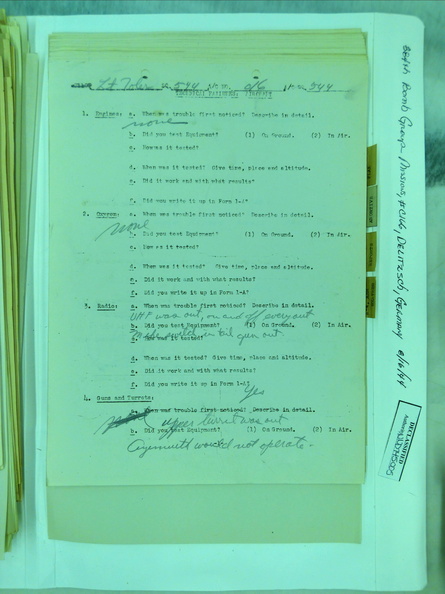 Lt Toler 544 A/C NO. 016 544
TECHNICAL FAILURES, AIRCRAFT
1. Engines: a. When was trouble first noticed? Describe in detail.
none
b. Did you test Equipment? (1) On Ground. (2) In Air.
c. How was it tested?
d. When was it tested? Give time, place and altitude.
e. Did it work and with what results?
f. Did you write it up in Form 1-A?
2. Oxygen: a. When was trouble first noticed? Describe in detail.
none
b. Did you test Equipment? (1) On Ground. (2) In Air.
c. How was it tested?
d. When was it tested? Give time, place and altitude.
e. Did it work and with what results?
f. Did you write it up in Form 1-A?
3. Radio: a. When was trouble first noticed? Describe in detail.
VHF was out, on and off every out
b. Did you test Equipment? (1) On Ground. (2) In Air.
Mike switch in tail gun out.
c. How was it tested?
d. When was it tested? Give time, place and altitude.
e. Did it work and with what results?
f. Did you write it up in Form 1-A?
Yes
4. Guns and Turrets:
a. When was trouble first noticed? Describe in detail.
upper turret was out
b. Did you test Equipment? (1) On Ground. (2) In Air.
Azymuith would not operate.
384th Bomb Group Missions, DELITZSCH, Germany 8/16/44
DECLASSIFIED
Authority NND745005